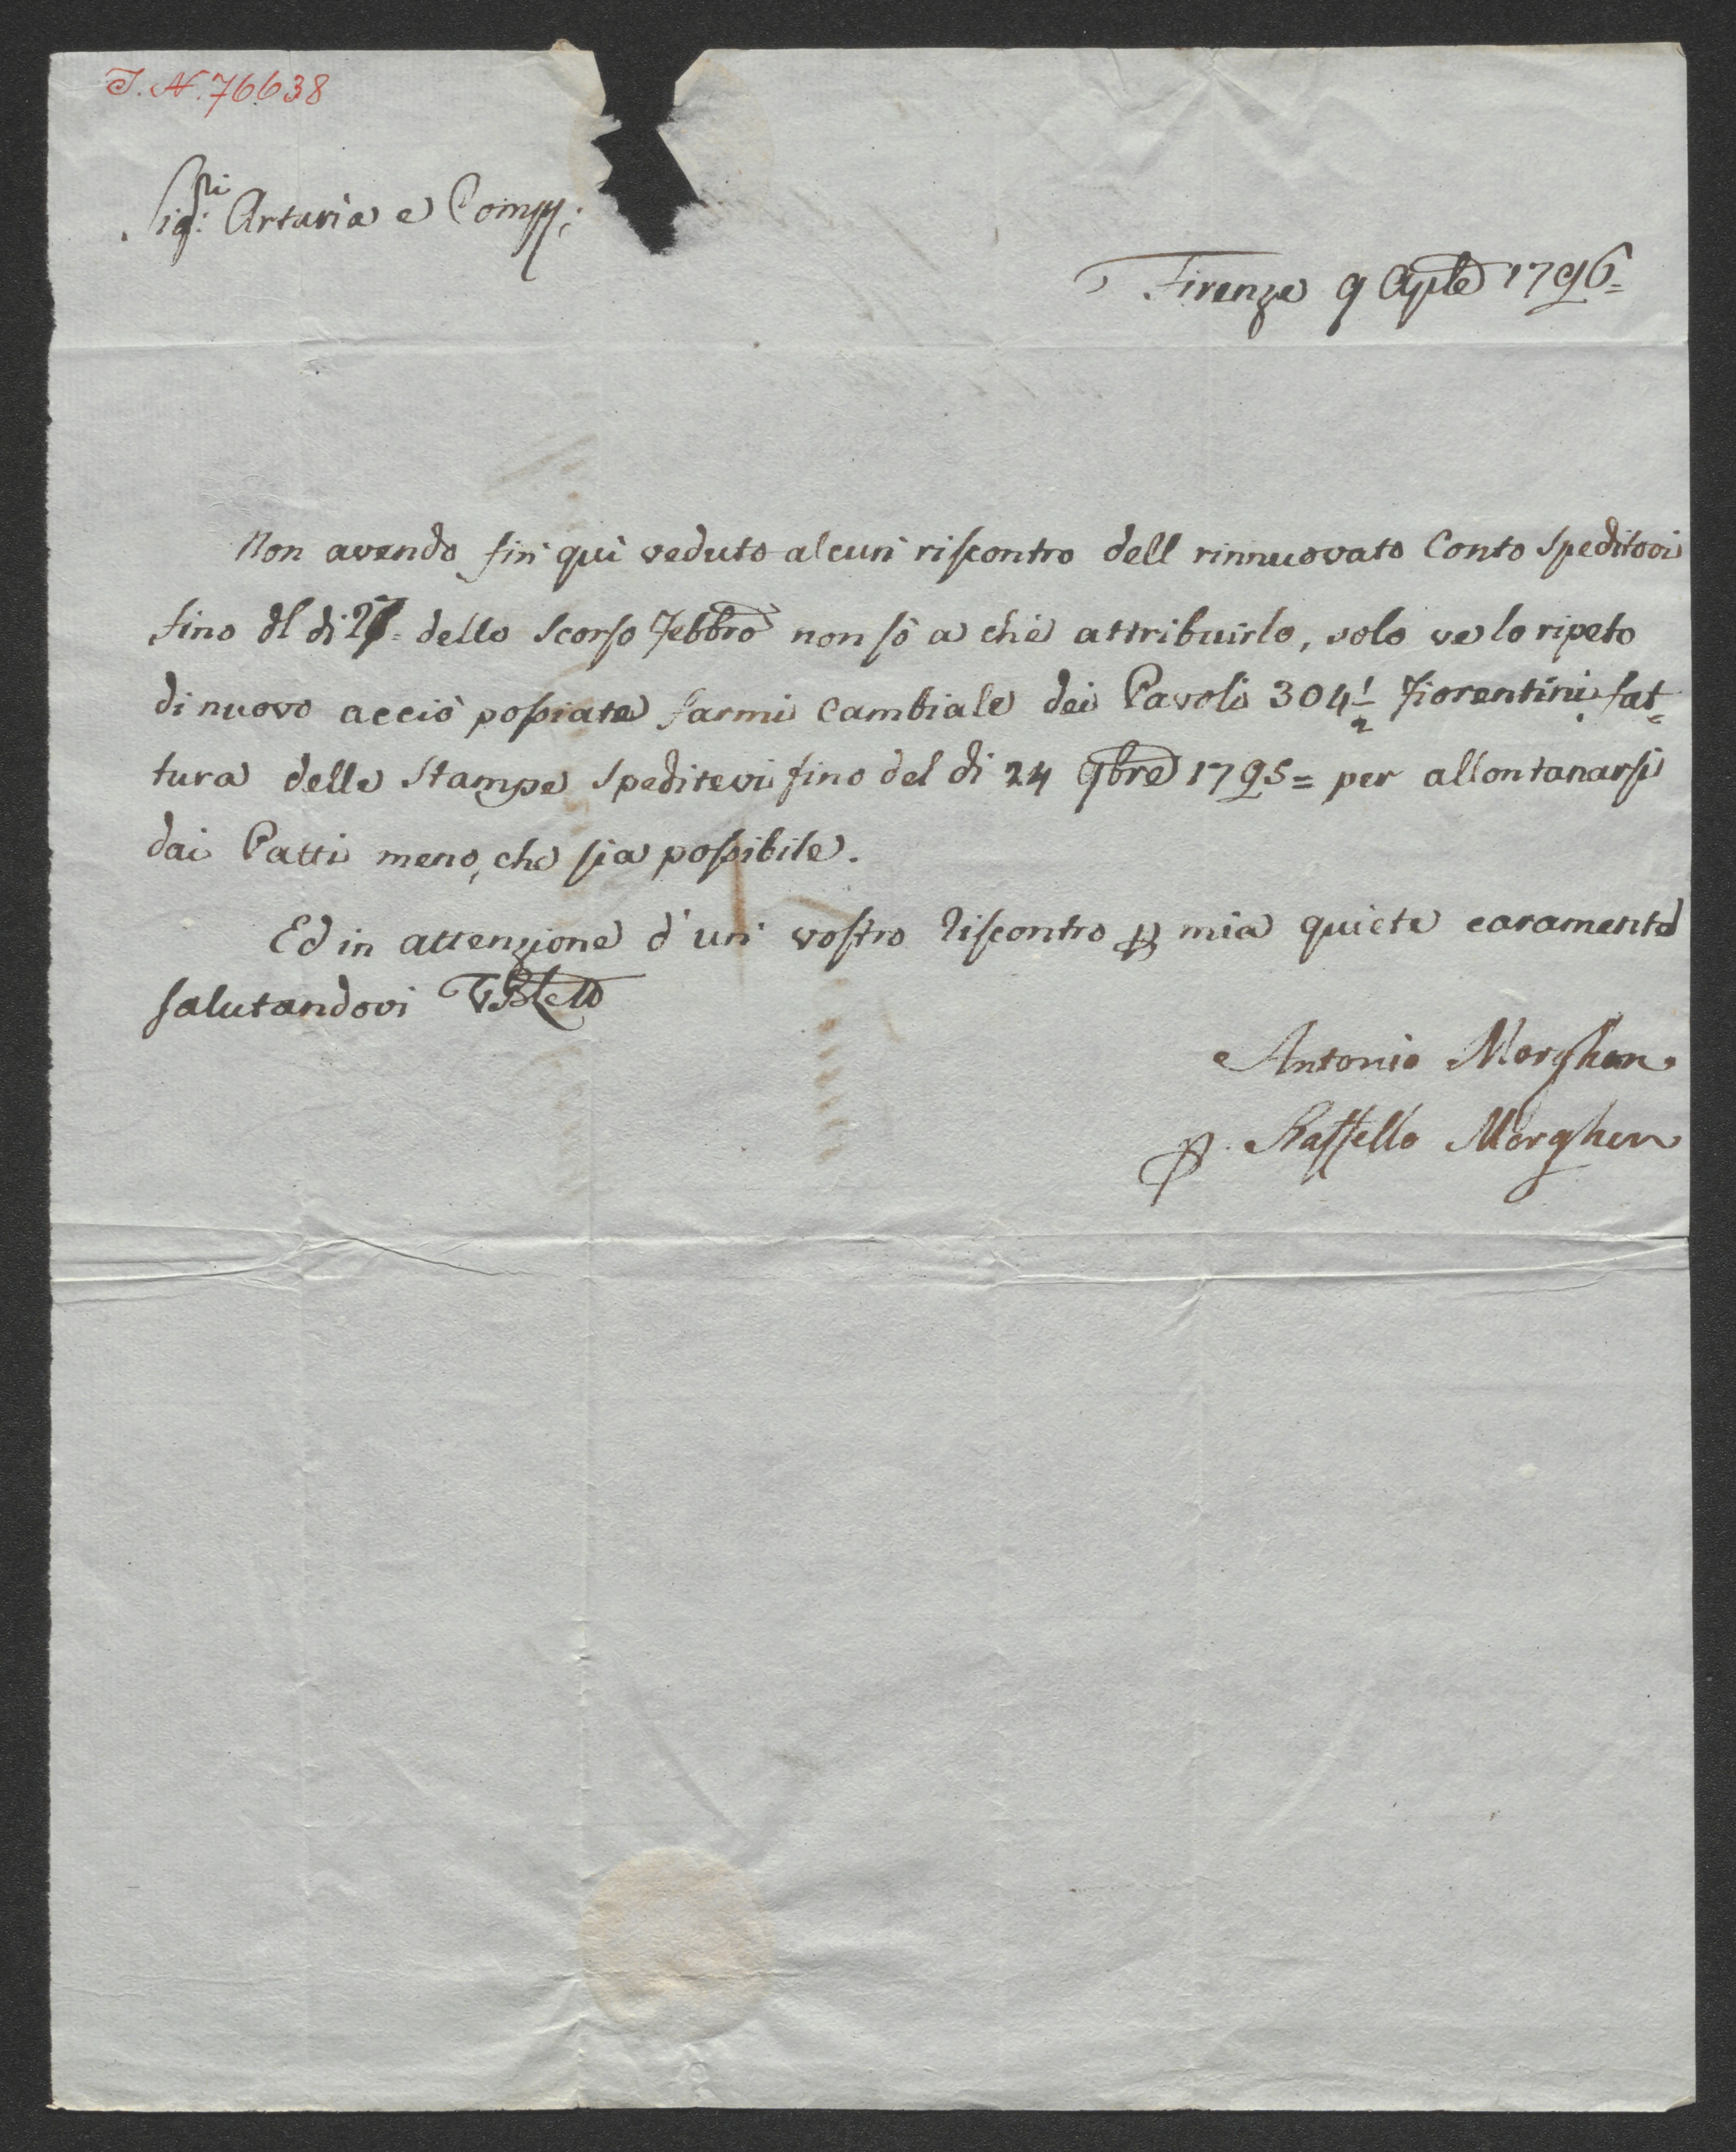 I. N. 76638
Sig:ri Artaria e Comp:
Firenze 9 Aple 1796=
Non avendo fin qui veduto alcun riscontro dell rinnuovato Conto speditovi
fino dl di 27= dello scorso Febbro non sò a che attribuirlo, solo ve lo ripeto
di nuovo acciò possiate farmi Cambiale dei Pavoli 304 1/2 Fiorentini fat=
tura delle Stampe speditevi fino del di 24 9bre 1795= per allontanarsi
dai Patti meno, che sia possibile.
Ed in attenzione d'un vostro Riscontro p mia quiete caramente
salutandovi
Antonio Morghen
p. Raffello Morghen